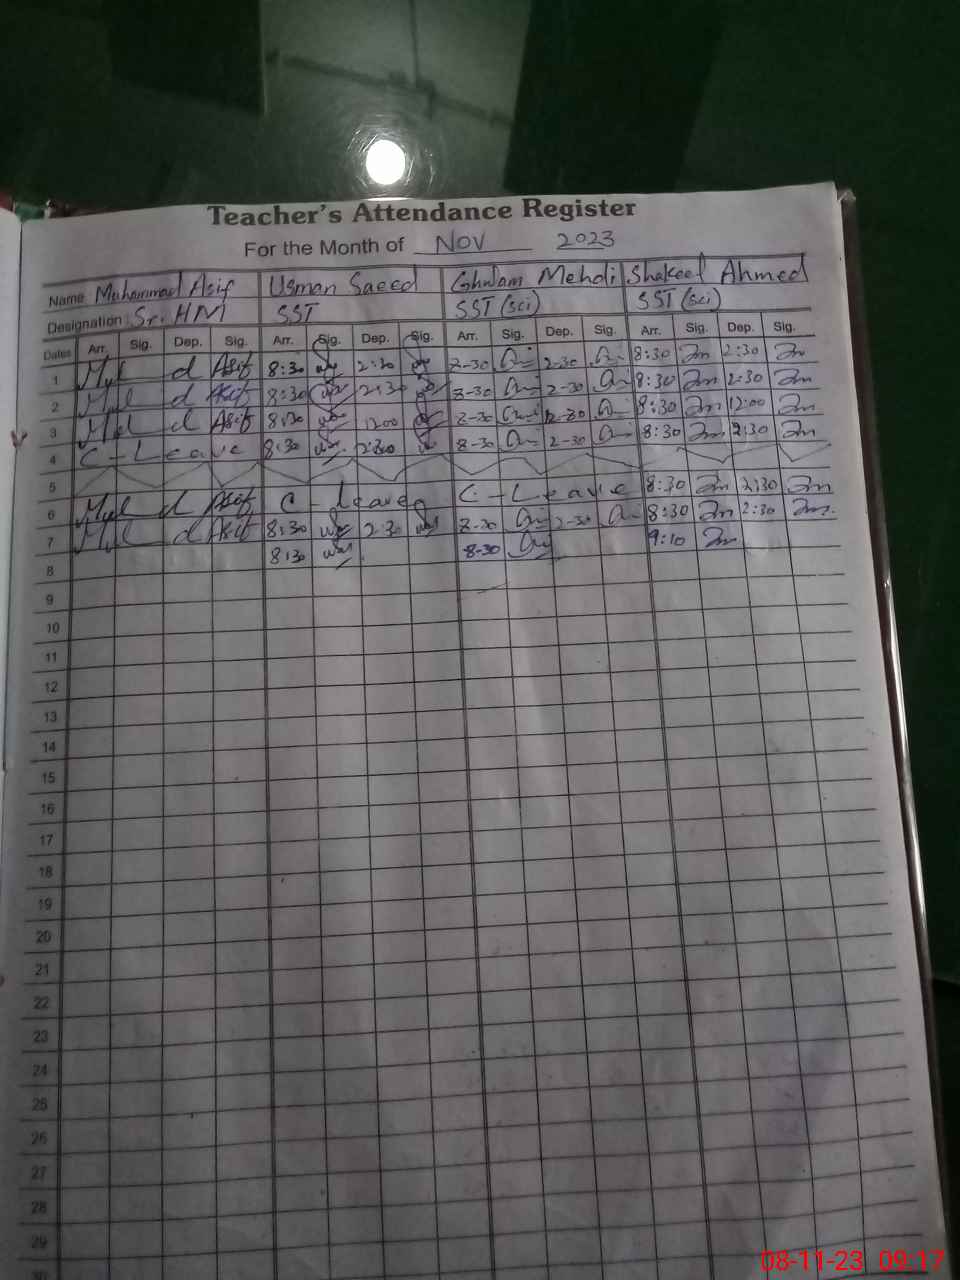 Teacher's Attendance Register
For the Month of Nov 2023
Name Muhammad Asif Usman Saeed Ghulam Mehdi Shakeel Ahmed
Designation Sr. HM SST SST (Sci) SST (Sci)
Dates Arr. Sig. Dep. Sig. Arr. Sig. Dep. Sig. Arr. Sig. Dep. Sig. Arr. Sig. Dep. Sig.
1 Asif 8:30 2:30 2-30 8:30 2:30
2 Asif 8:30 2:30 2-30 8:30 2:30
3 Asif 8:30 12:00 8:30 12:00
4 C-Leave 8:30 2:30 8-30 2-30 8:30 2:30
5
6 Asif C-Leave C-Leave 8:30 2:30
7 Asif 8:30 2:30 2-30 8:30 2:30
8 8:30 8-30 9:10
9
10
11
12
13
14
15
16
17
18
19
20
21
22
23
24
25
26
27
28
29
30
08-11-23 09:17